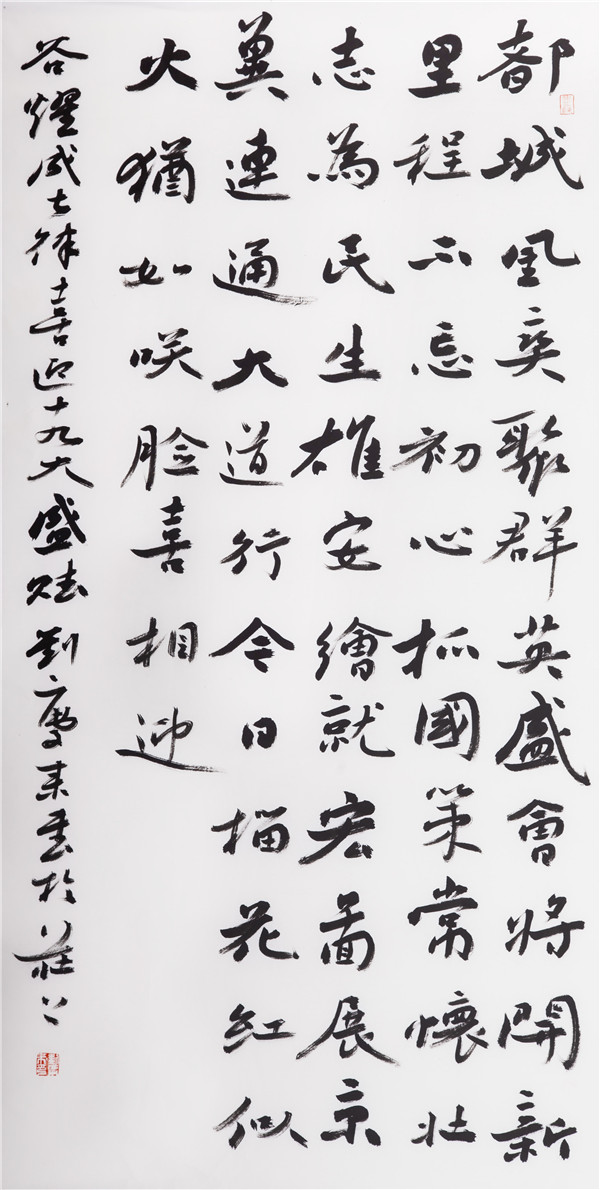 都城風奕聚群英盛會將開新
里程不忘初心抓國策常懷壯
志為民生雄安繪就宏圖展京
冀連通大道行今日榴花紅似
火猶如咲臉喜相迎
谷燿成七律喜迎十九大盛赋劉慶来書於莊上